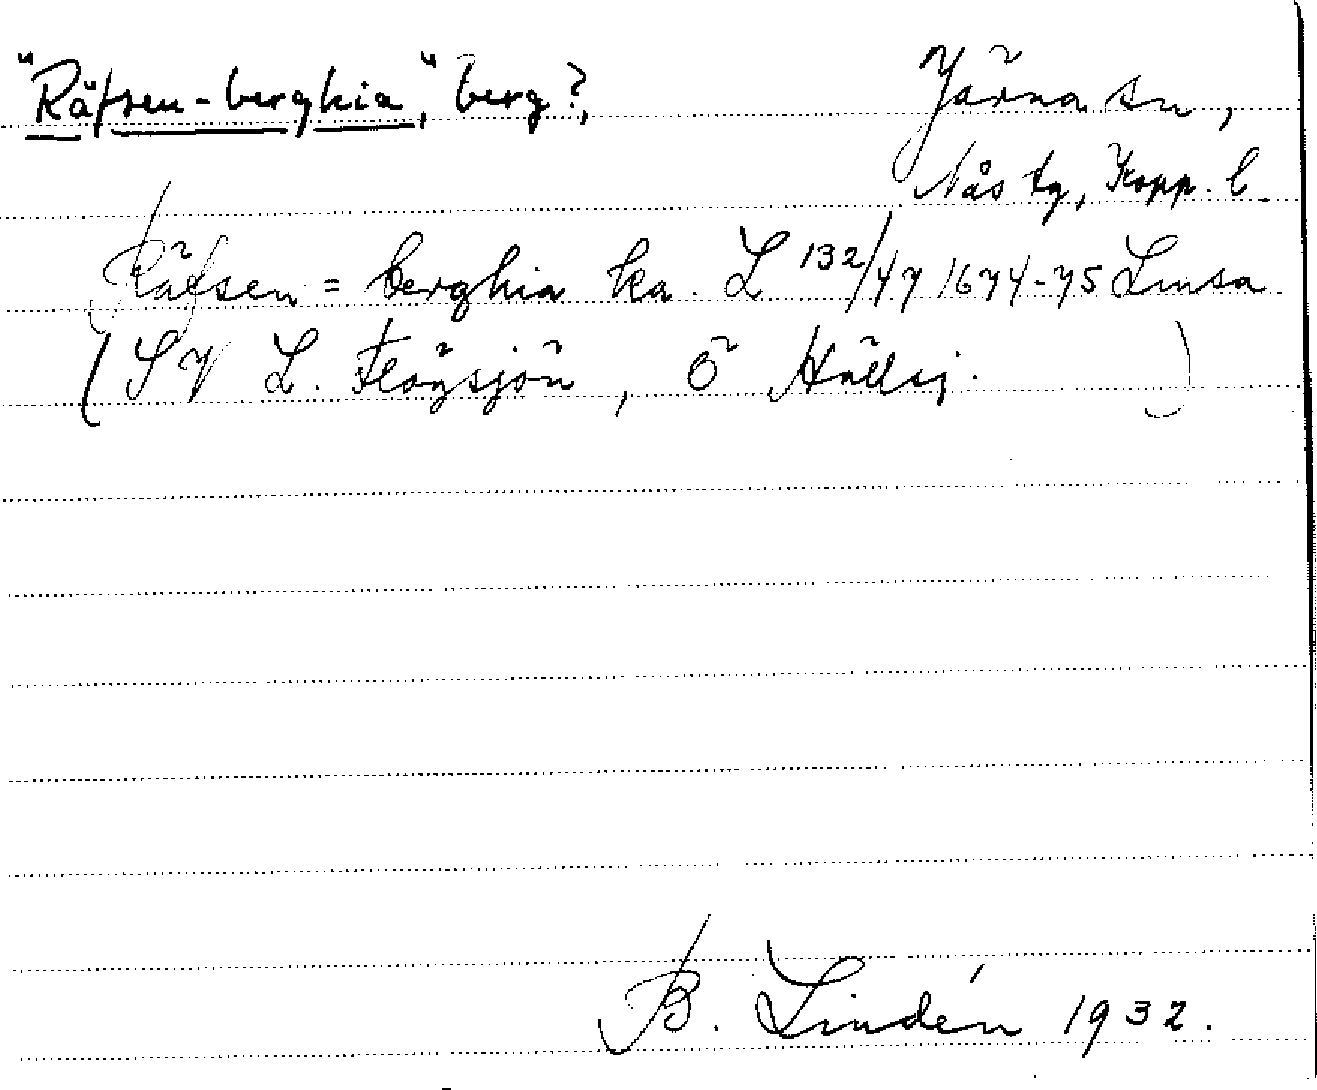 "Räfsen-berghia," berg?,
Järna sn,
Nås tg, Kopp. l.
Räfsen = berghia ka. L 132/47 1674-75 Lmsa
(SV L. Flögsjön, Ö Hällsj. )
B. Lindén 1932.